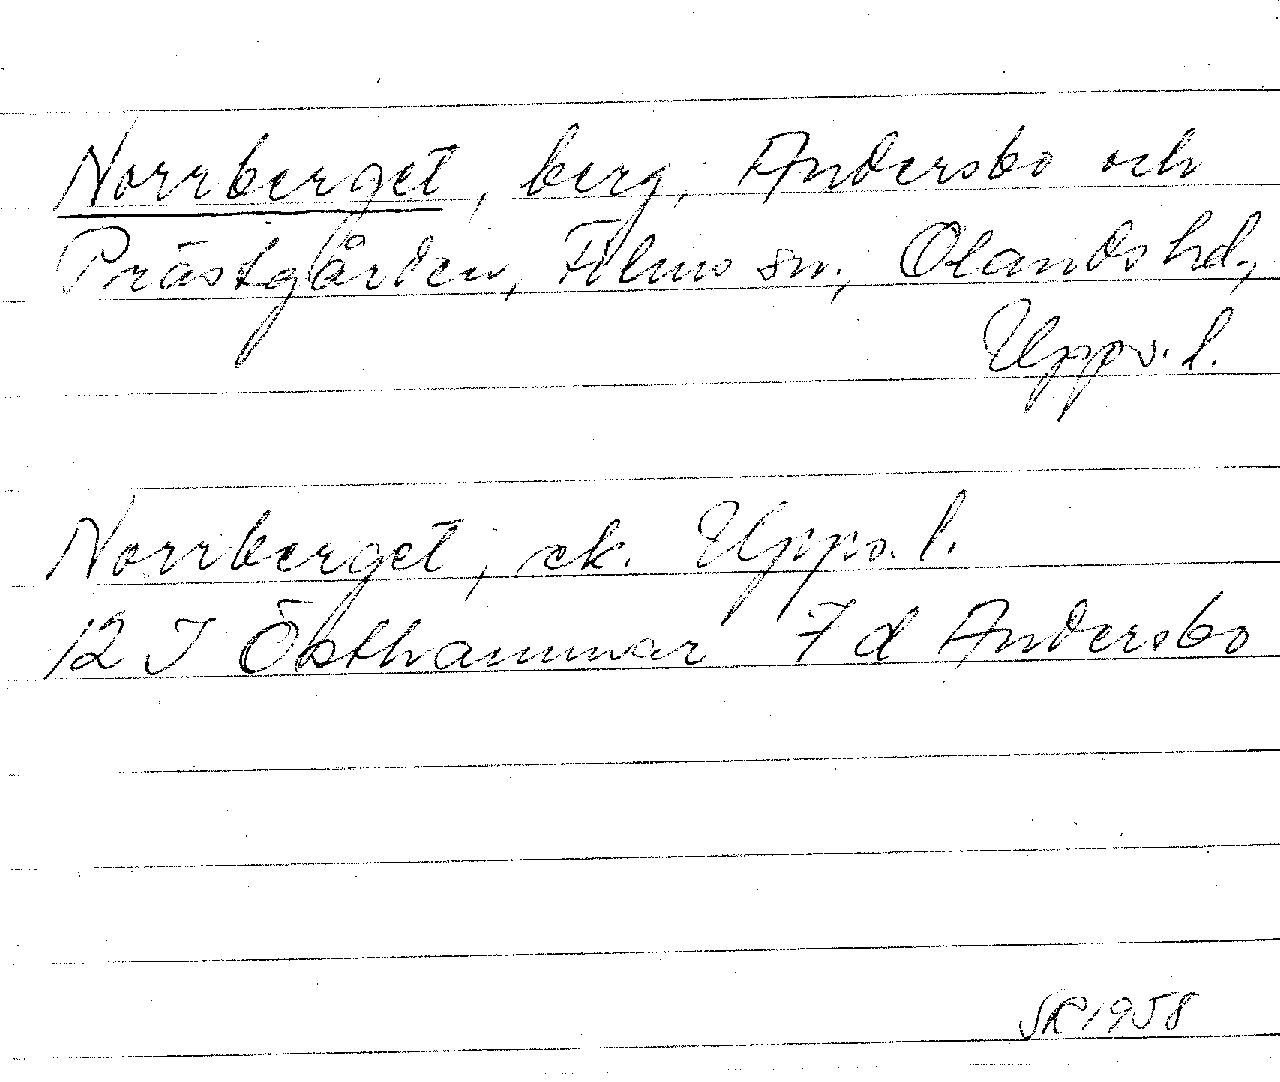 Norrberget, berg, Andersbo och
Prästgården, Films sn., Olands hd.,
Upps. l.
Norrberget, ek. Upps. l.
12 I Östhammar 7 d Andersbo
SK 1958